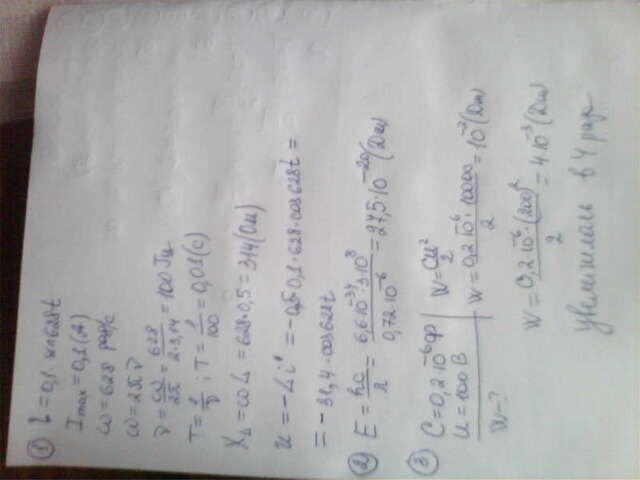 ① i=0,1·sin628t
Imax=0,1(A)
ω=628 рад/с
ω=2πν
ν=ω/2π=628/2·3,14=100 Гц
T=1/ν; T=1/100=0,01(с)
X_L=ωL=628·0,5=314(Ом)
u=-Li'=-0,5·0,1·628·cos628t=
=-31,4·cos628t
② E=hc/λ=6,6·10^-34·3·10^8/0,72·10^-6=27,5·10^-20(Дж)
③ C=0,2·10^-6ф
U=100 В
W-?
W=CU²/2
W=0,2·10^-6·10000/2=10^-3(Дж)
W=0,2·10^-6·(200)²/2=4·10^-3(Дж)
увеличилась в 4 раза